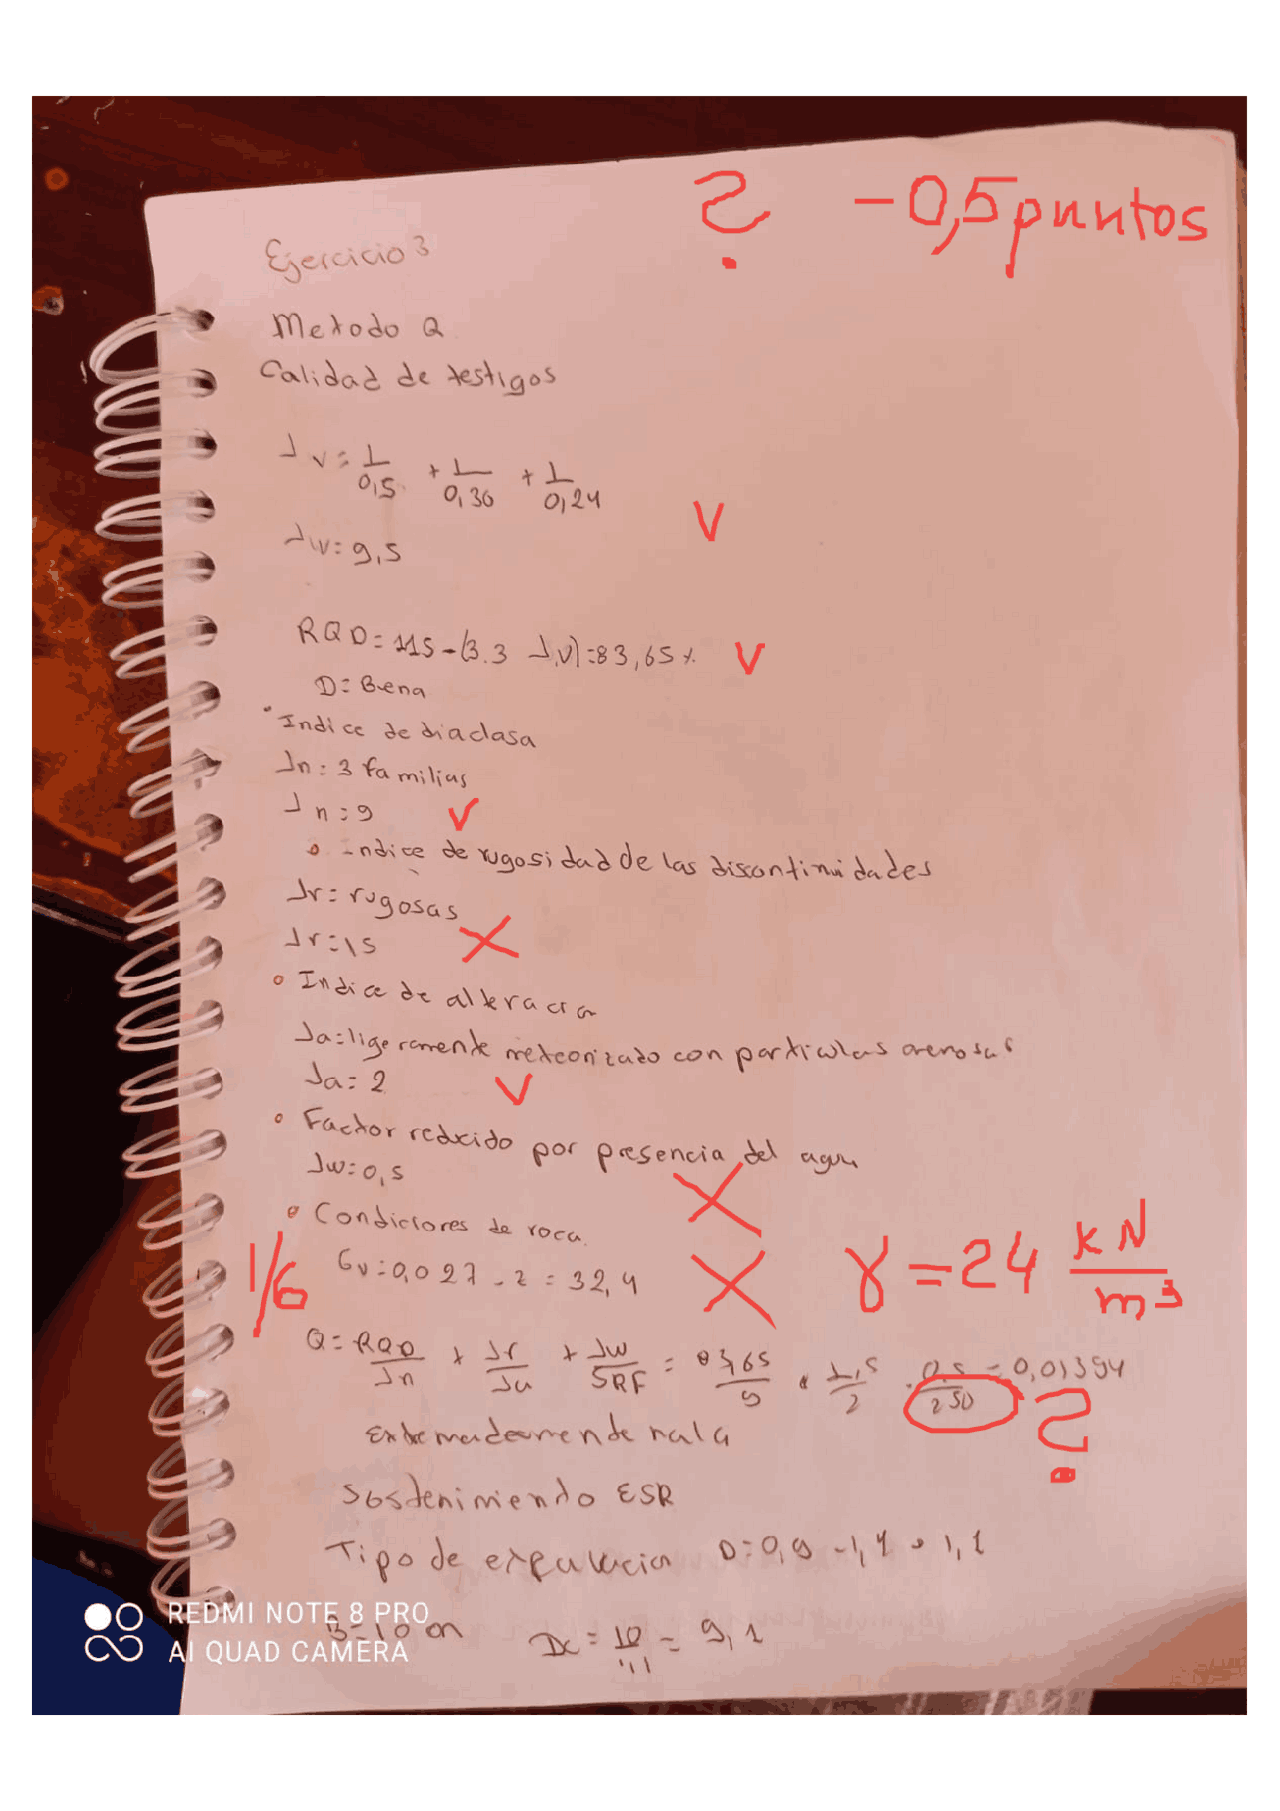 ? -0,5 puntos
Ejercicio 3
Metodo Q
Calidad de testigos
Jv = 1/0,5 + 1/0,36 + 1/0,24
V
Jv = 9,5
RQD = 115 - (3.3 Jv) = 83,65 % V
D = Buena
Indice de diaclasa
Jn = 3 familias
Jn = 9 V
Indice de rugosidad de las discontinuidades
Jr = rugosas
Jr = 1,5 X
Indice de alteracion
Ja = ligeramente meteorizado con particulas arenosas
Ja = 2 V
Factor reducido por presencia del agua
Jw = 0,5 X
Condiciones de roca.
1/6
Gv = 0,027 - z = 32,4 X γ = 24 kN/m³
Q = RQD/Jn x Jr/Ja x Jw/SRF = 83,65/9 . 1,5/2 . 0,5/250 = 0,01394
?
Extremadamente mala
Sostenimiento ESR
Tipo de D = 0,9 - 1,1 1,1
REDMI NOTE 8 PRO
AI QUAD CAMERA
B = 10 m De = 10/1,1 = 9,1